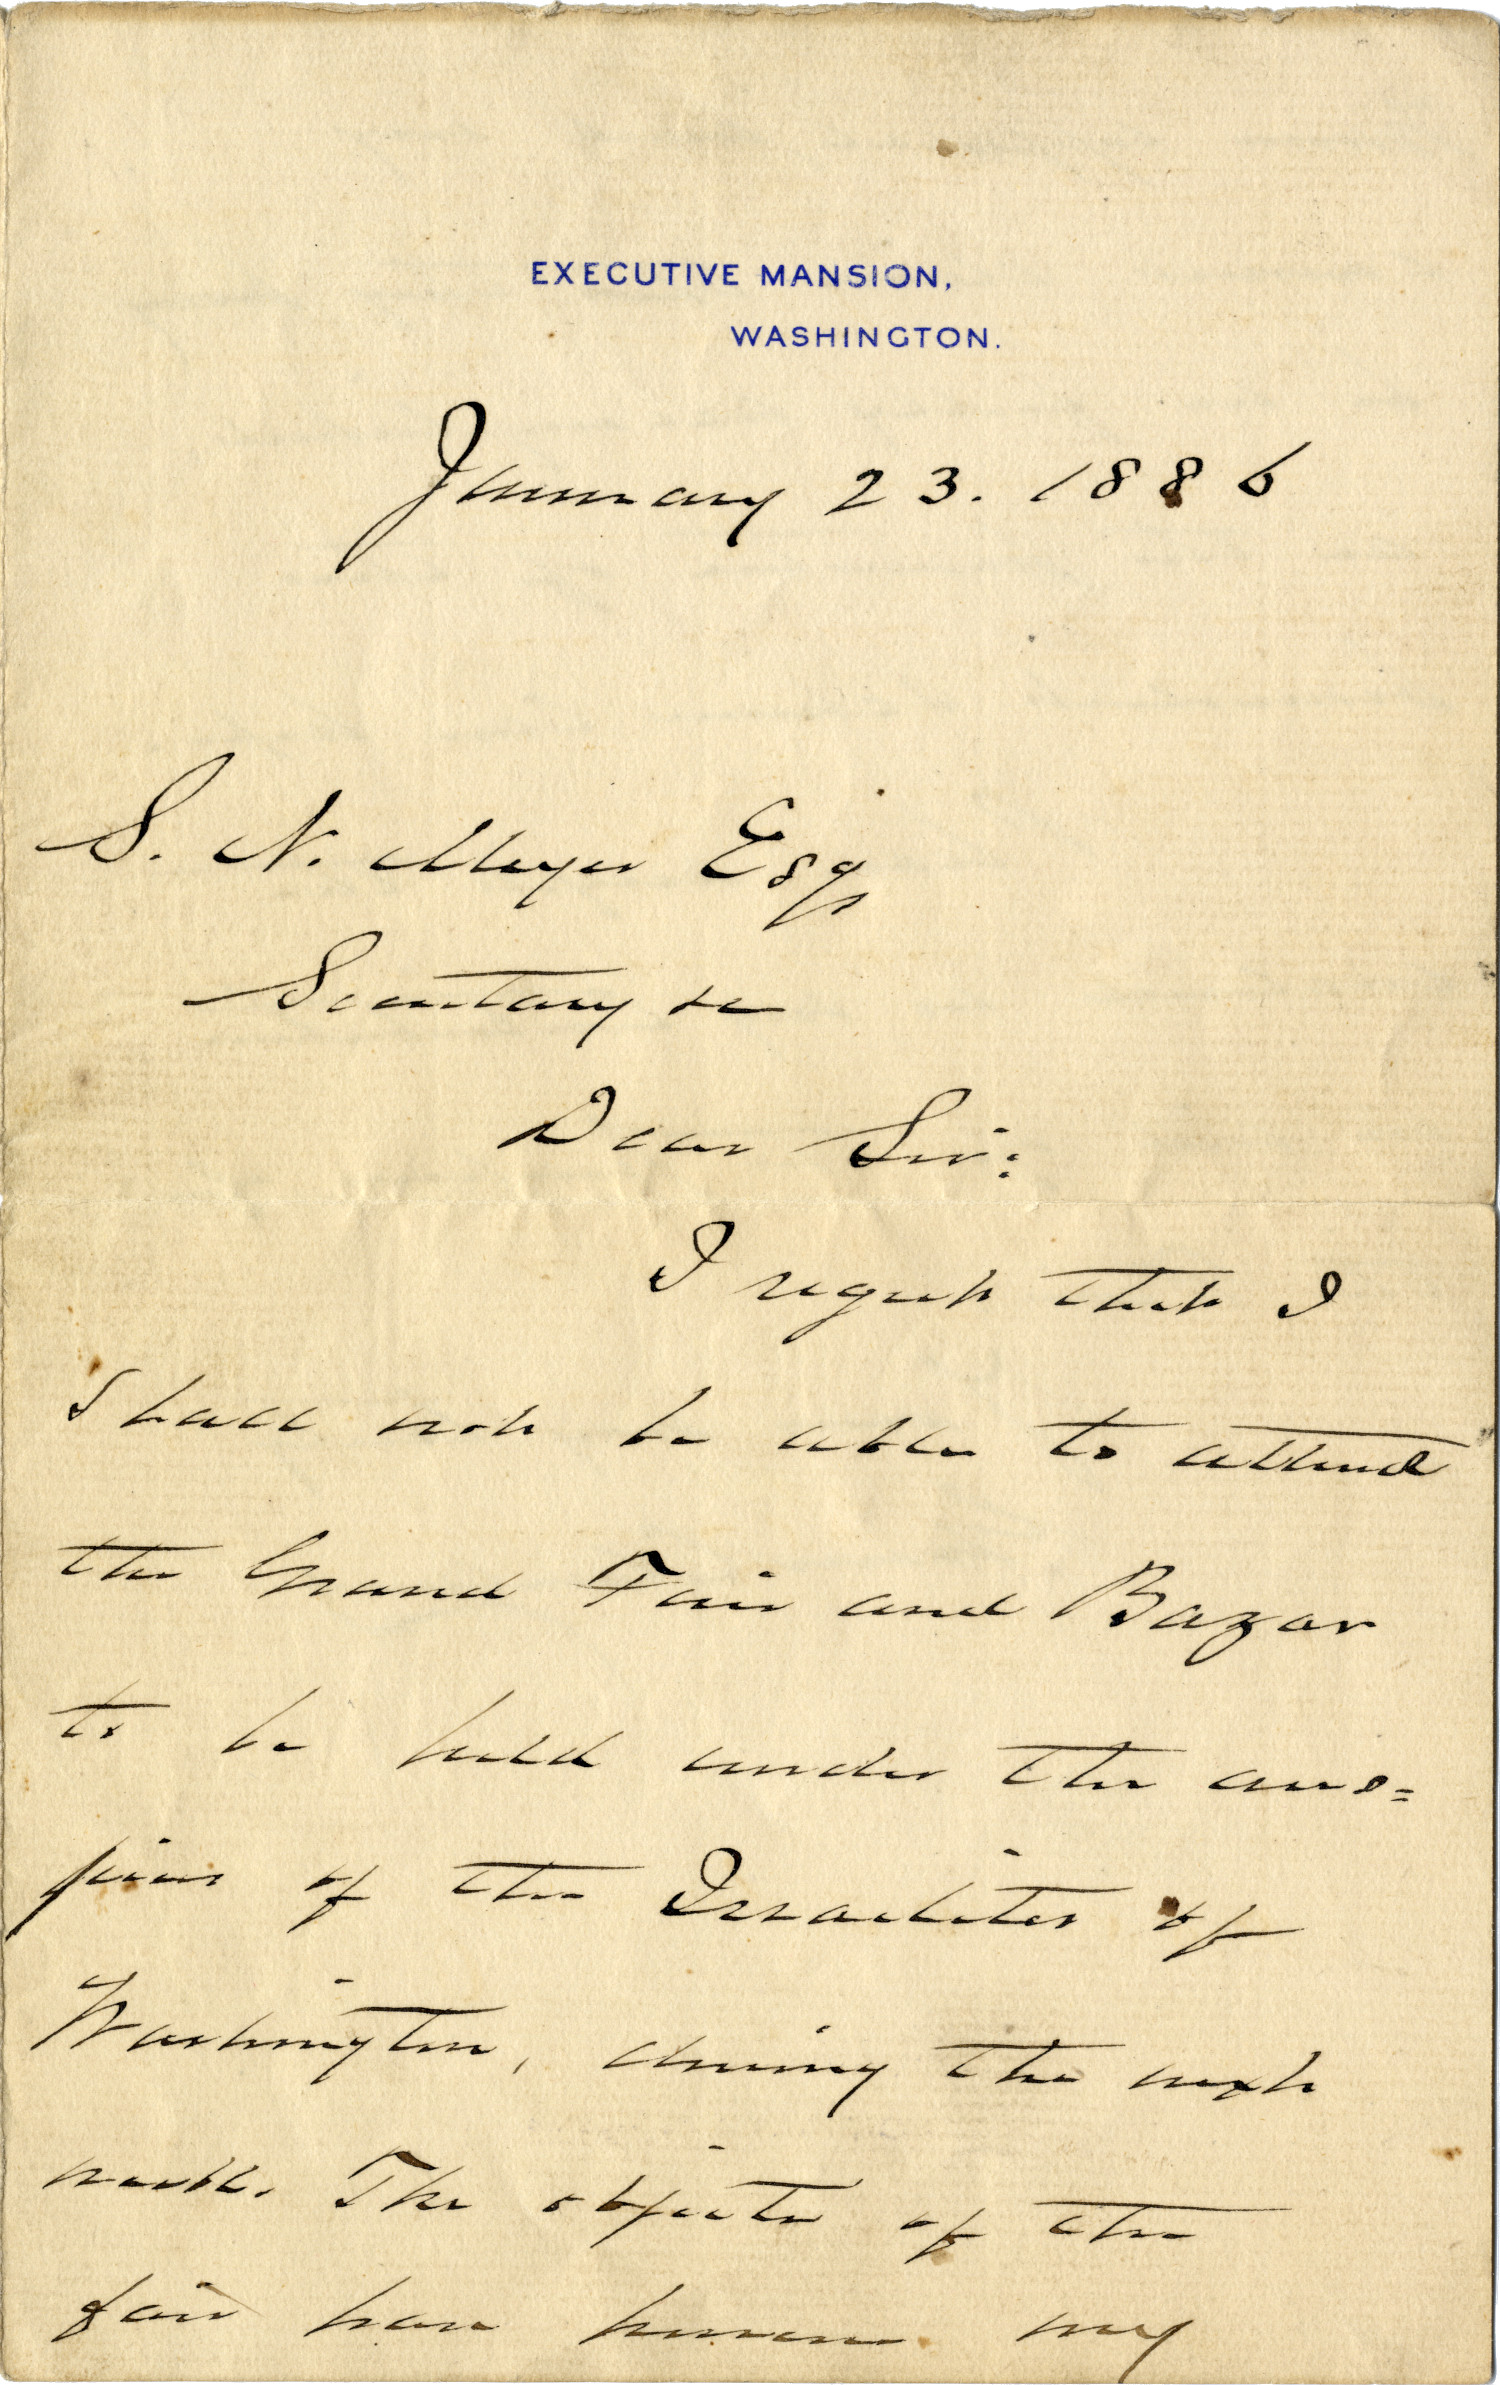 EXECUTIVE MANSION,
WASHINGTON.
January 23. 1886
S. N. Meyer Esq
Secretary &c
Dear Sir:
I regret that I
shall not be able to attend
the Grand Fair and Bazar
to be held under the aus=
pices of the Israelites of
Washington, during the next
week. The objects of the
fair have my